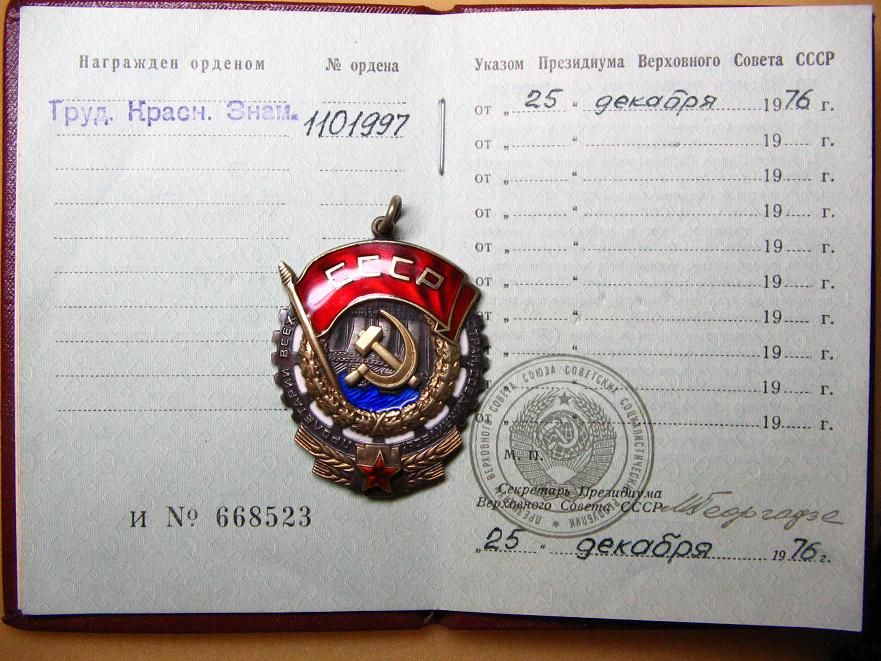 Награжден орденом
№ ордена
Труд. Красн. Знам.
1101997
СССР
ПРОЛЕТАРИИ ВСЕХ
И № 668523
Указом Президиума Верховного Совета СССР
от „ 25 “ декабря 1976 г.
от „ “ 19 г.
от „ “ 19 г.
от „ “ 19 г.
от „ “ 19 г.
от „ “ 19 г.
от „ “ 19 г.
от „ “ 19 г.
от „ “ 19 г.
от „ “ 19 г.
ВЕРХОВНОГО СОВЕТА СОЮЗА СОВЕТСКИХ СОЦИАЛИСТИЧЕСКИХ РЕСПУБЛИК
М. П.
Секретарь Президиума
Верховного Совета СССР МГеоргадзе
„25 “ декабря 1976 г.